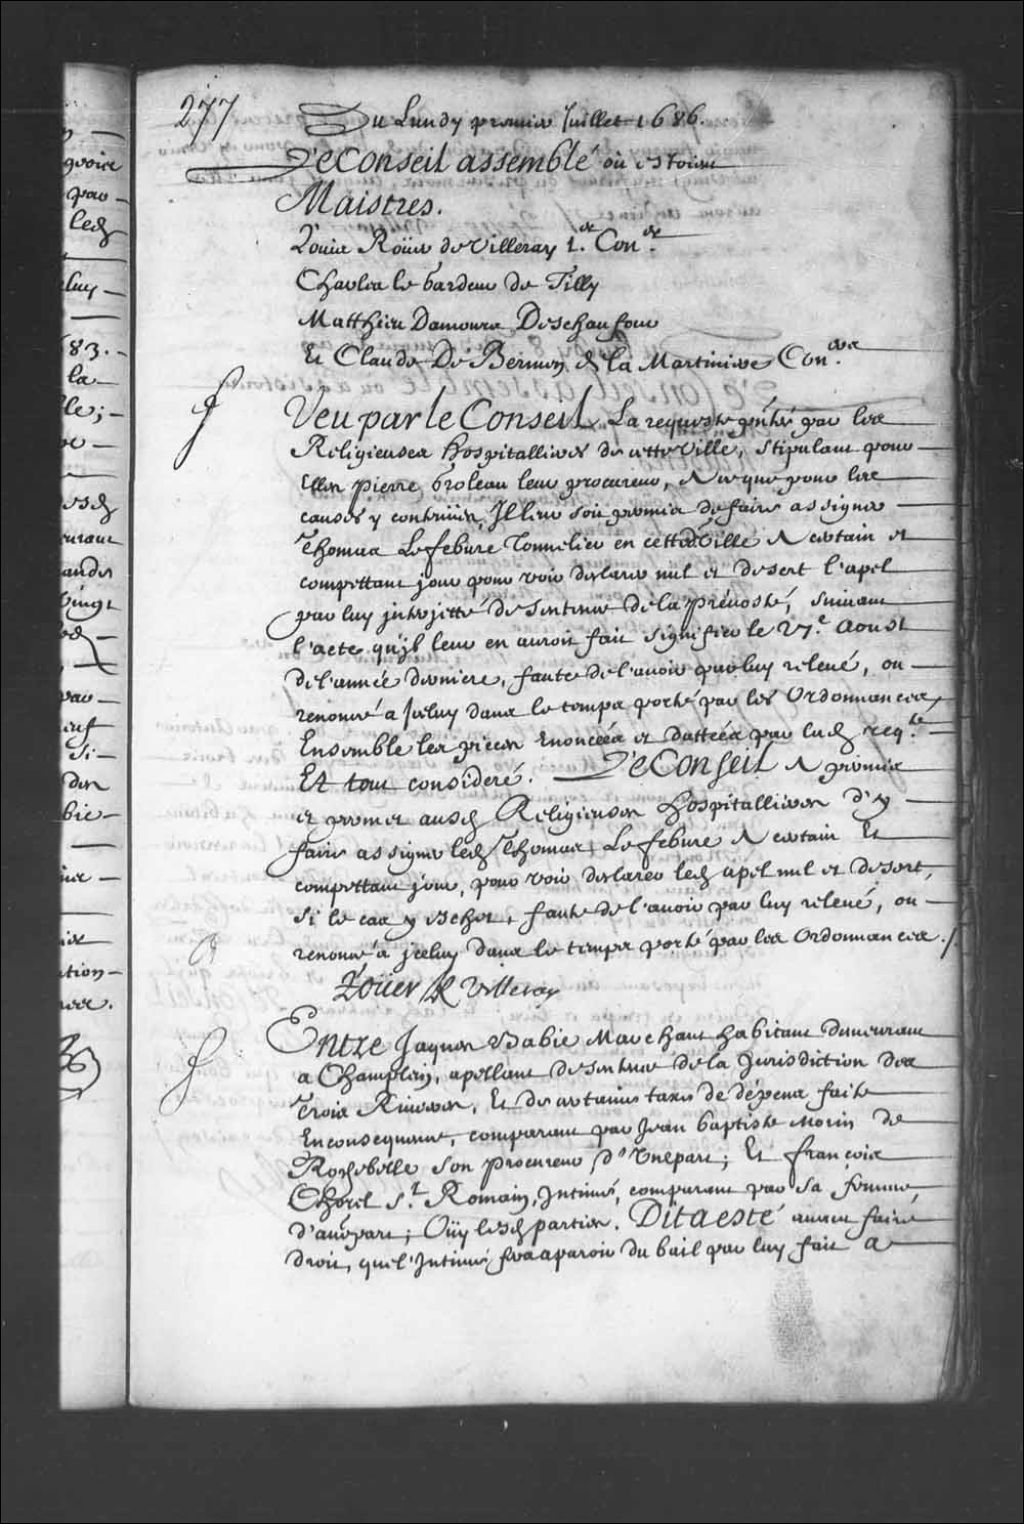 277
Du Lundy premier Juillet 1686.
Le Conseil assemblé où estoient
Maistres.
Louis Roüer de Villeray 1.er Con.er
Charles le Gardeur de Tilly
Matthieu Damours Deschaufour
Et Claude De Bermen de la Martiniere Con.ers
Veu par le Conseil La requeste pñtée par les
Religieuses hospitallieres de cette Ville, stipulant pour
elles pierre Groleau leur procureur, A ce que pour les
causes y contenües, Il leur soit permis de faire assigner
Thomas Lefebure Tonnelier en cette d. Ville A certain et
compettant jour pour voir declarer nul et desert l'apel
par luy interjetté de sentence de la prévosté, suivant
l'acte qu'jl leur en auroit fait signifier le 27.e Aoust
de l'année derniere, faute de l'avoir par luy relevé, ou
renoncé a Jceluy dans le temps porté par les Ordonnances,
Ensemble les pieces Enoncéés et dattéés par lad. req.te
Et tout consideré. Le Conseil A permis
et permet ausd. Religieuses hospitallieres d'y
faire assigner led. Thomas Lefebure A certain Et
compettant jour, pour voir declarer led. apel nul et desert,
si le cas y eschet, faute de l'avoir par luy relevé, ou
renoncé a jceluy dans le temps porté par les Ordonnances ./.
Roüer de Villeray
Entre Jaques Babie Marchant habitant demeurant
a Champlain, apellant de sentence de la Jurisdiction des
Trois Rivieres, Et de certaines taxes de dépens faite
En consequence, comparant par Jean baptiste Morin de
Rochebelle son procureur, d'Vne part; Et françois
Chorel s.t Romain, Jntimé, comparant par sa femme,
d'autre part; Oüy lesd. parties. Dit a esté avant faire
droit, que l'Jntimé fera aparoir du bail par luy fait a